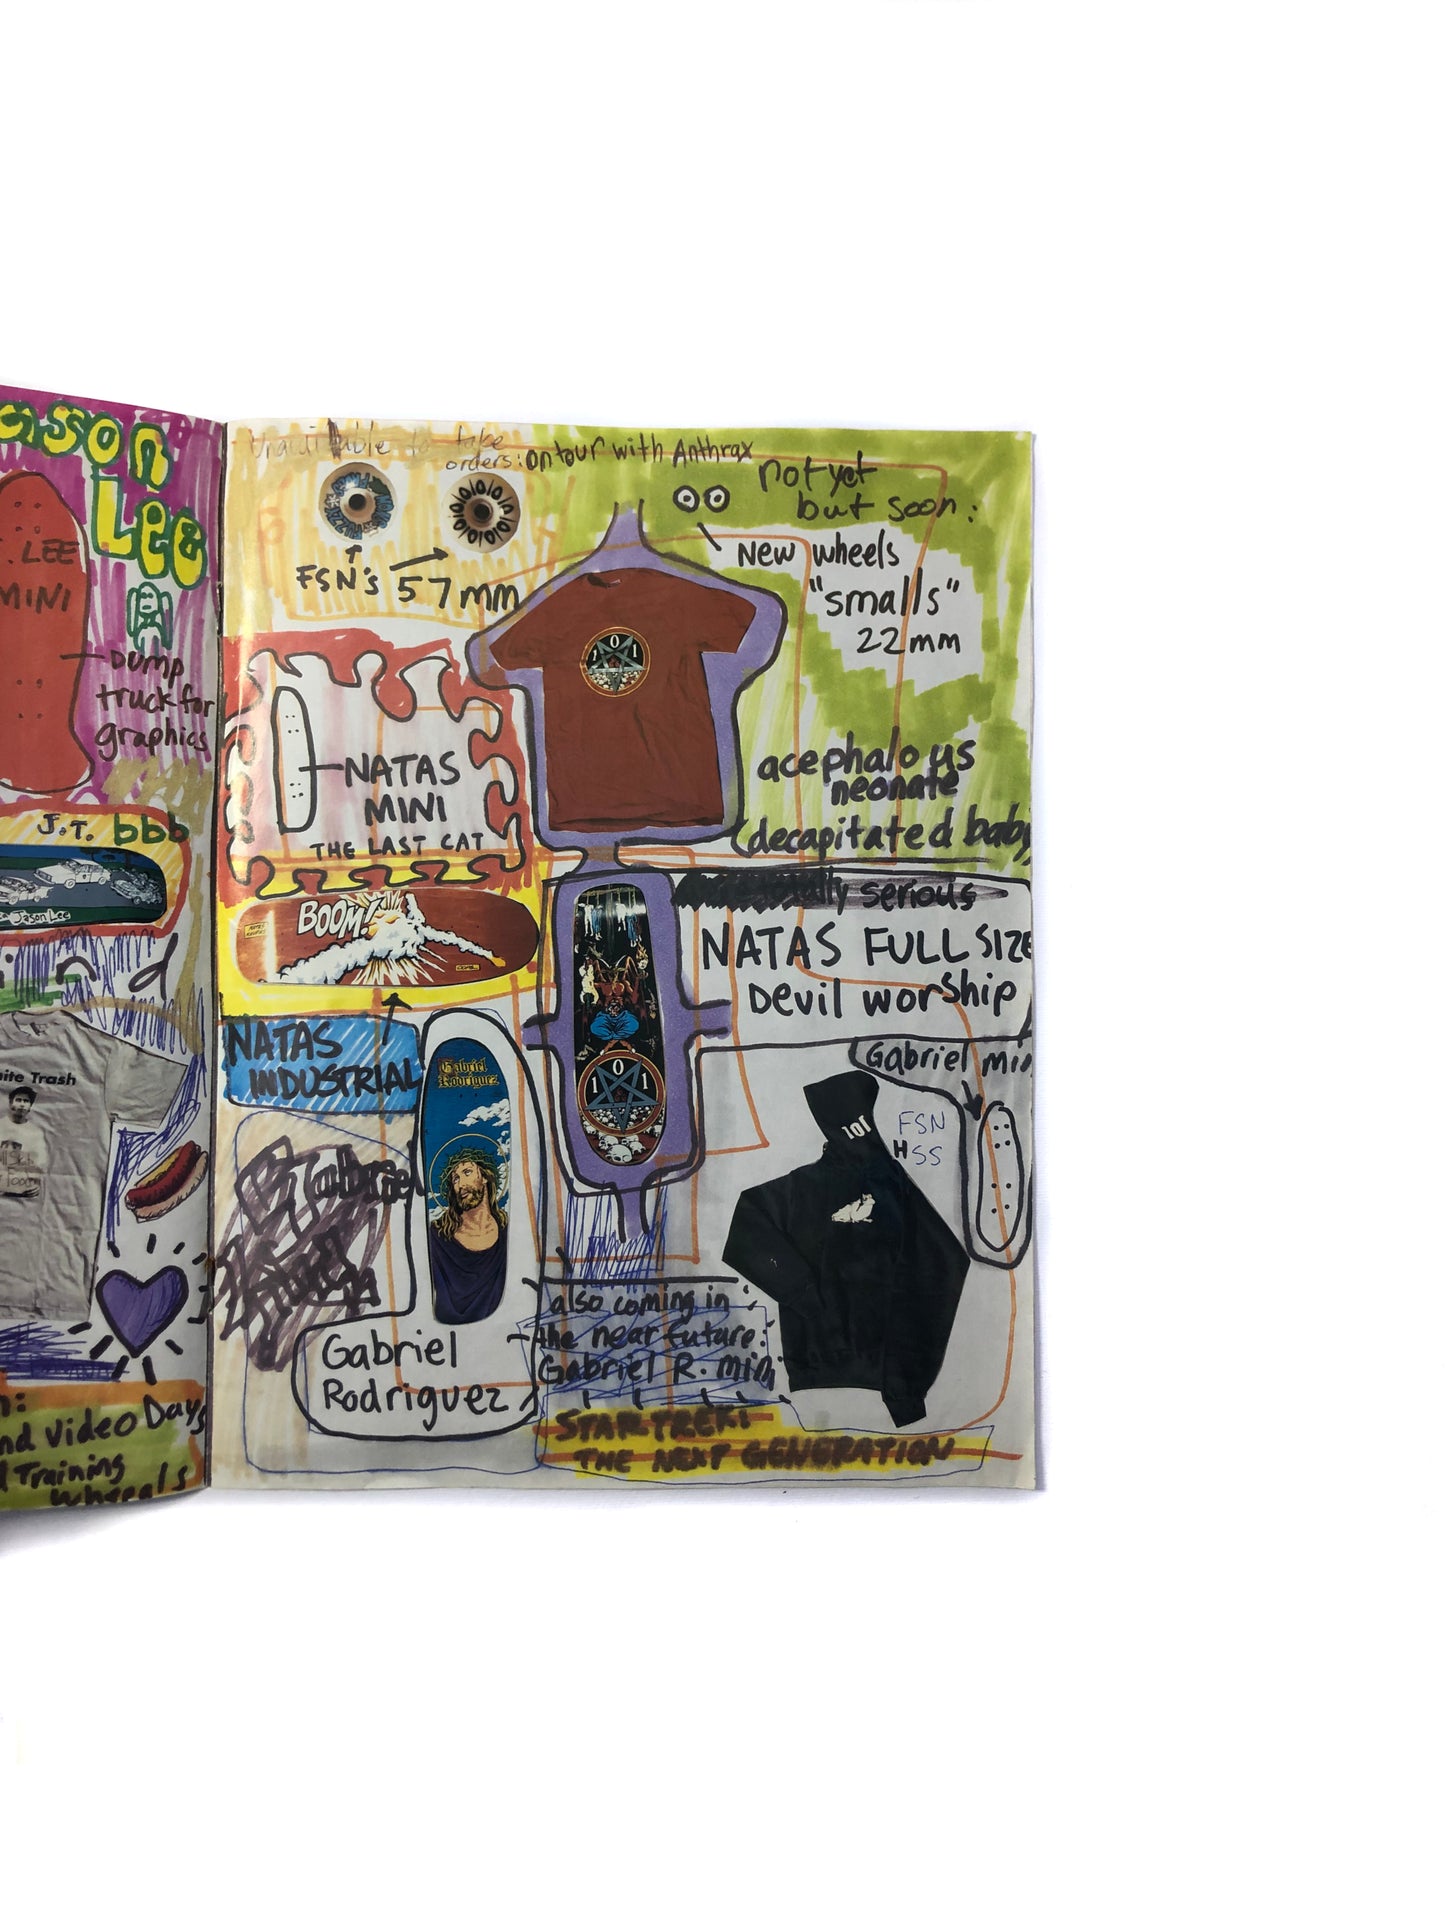 ason
Lee
. LEE
MINI
DUMP
truck for
graphics
J.T. bbb
Jason Lee
ite Trash
nd Video Days
Training
wheels
Unavailable to take
orders: on tour with Anthrax
FSN's 57mm
not yet
but soon:
New wheels
"smalls"
22mm
101
acephalous
neonate
(decapitated baby)
NATAS
MINI
THE LAST CAT
BOOM!
NATAS
INDUSTRIAL
totally serious
NATAS FULL SIZE
Devil worship
101
Gabriel
Rodriguez
Gabriel min
101
FSN
HSS
Gabriel
Rodriguez
also coming in
the near future:
Gabriel R. mini
STAR TREK:
THE NEXT GENERATION